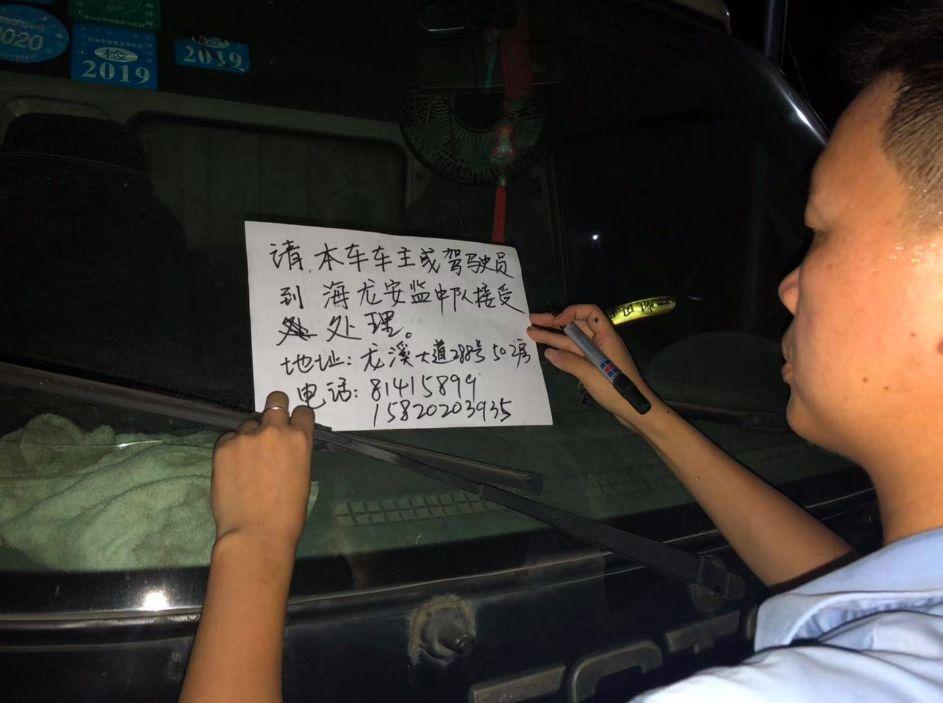 2020
检
2019
2019
请,本车车主或驾驶员
到 海龙安监中队接受
处理。
地址:龙溪大道288号502房
电话:81415899
15820203935